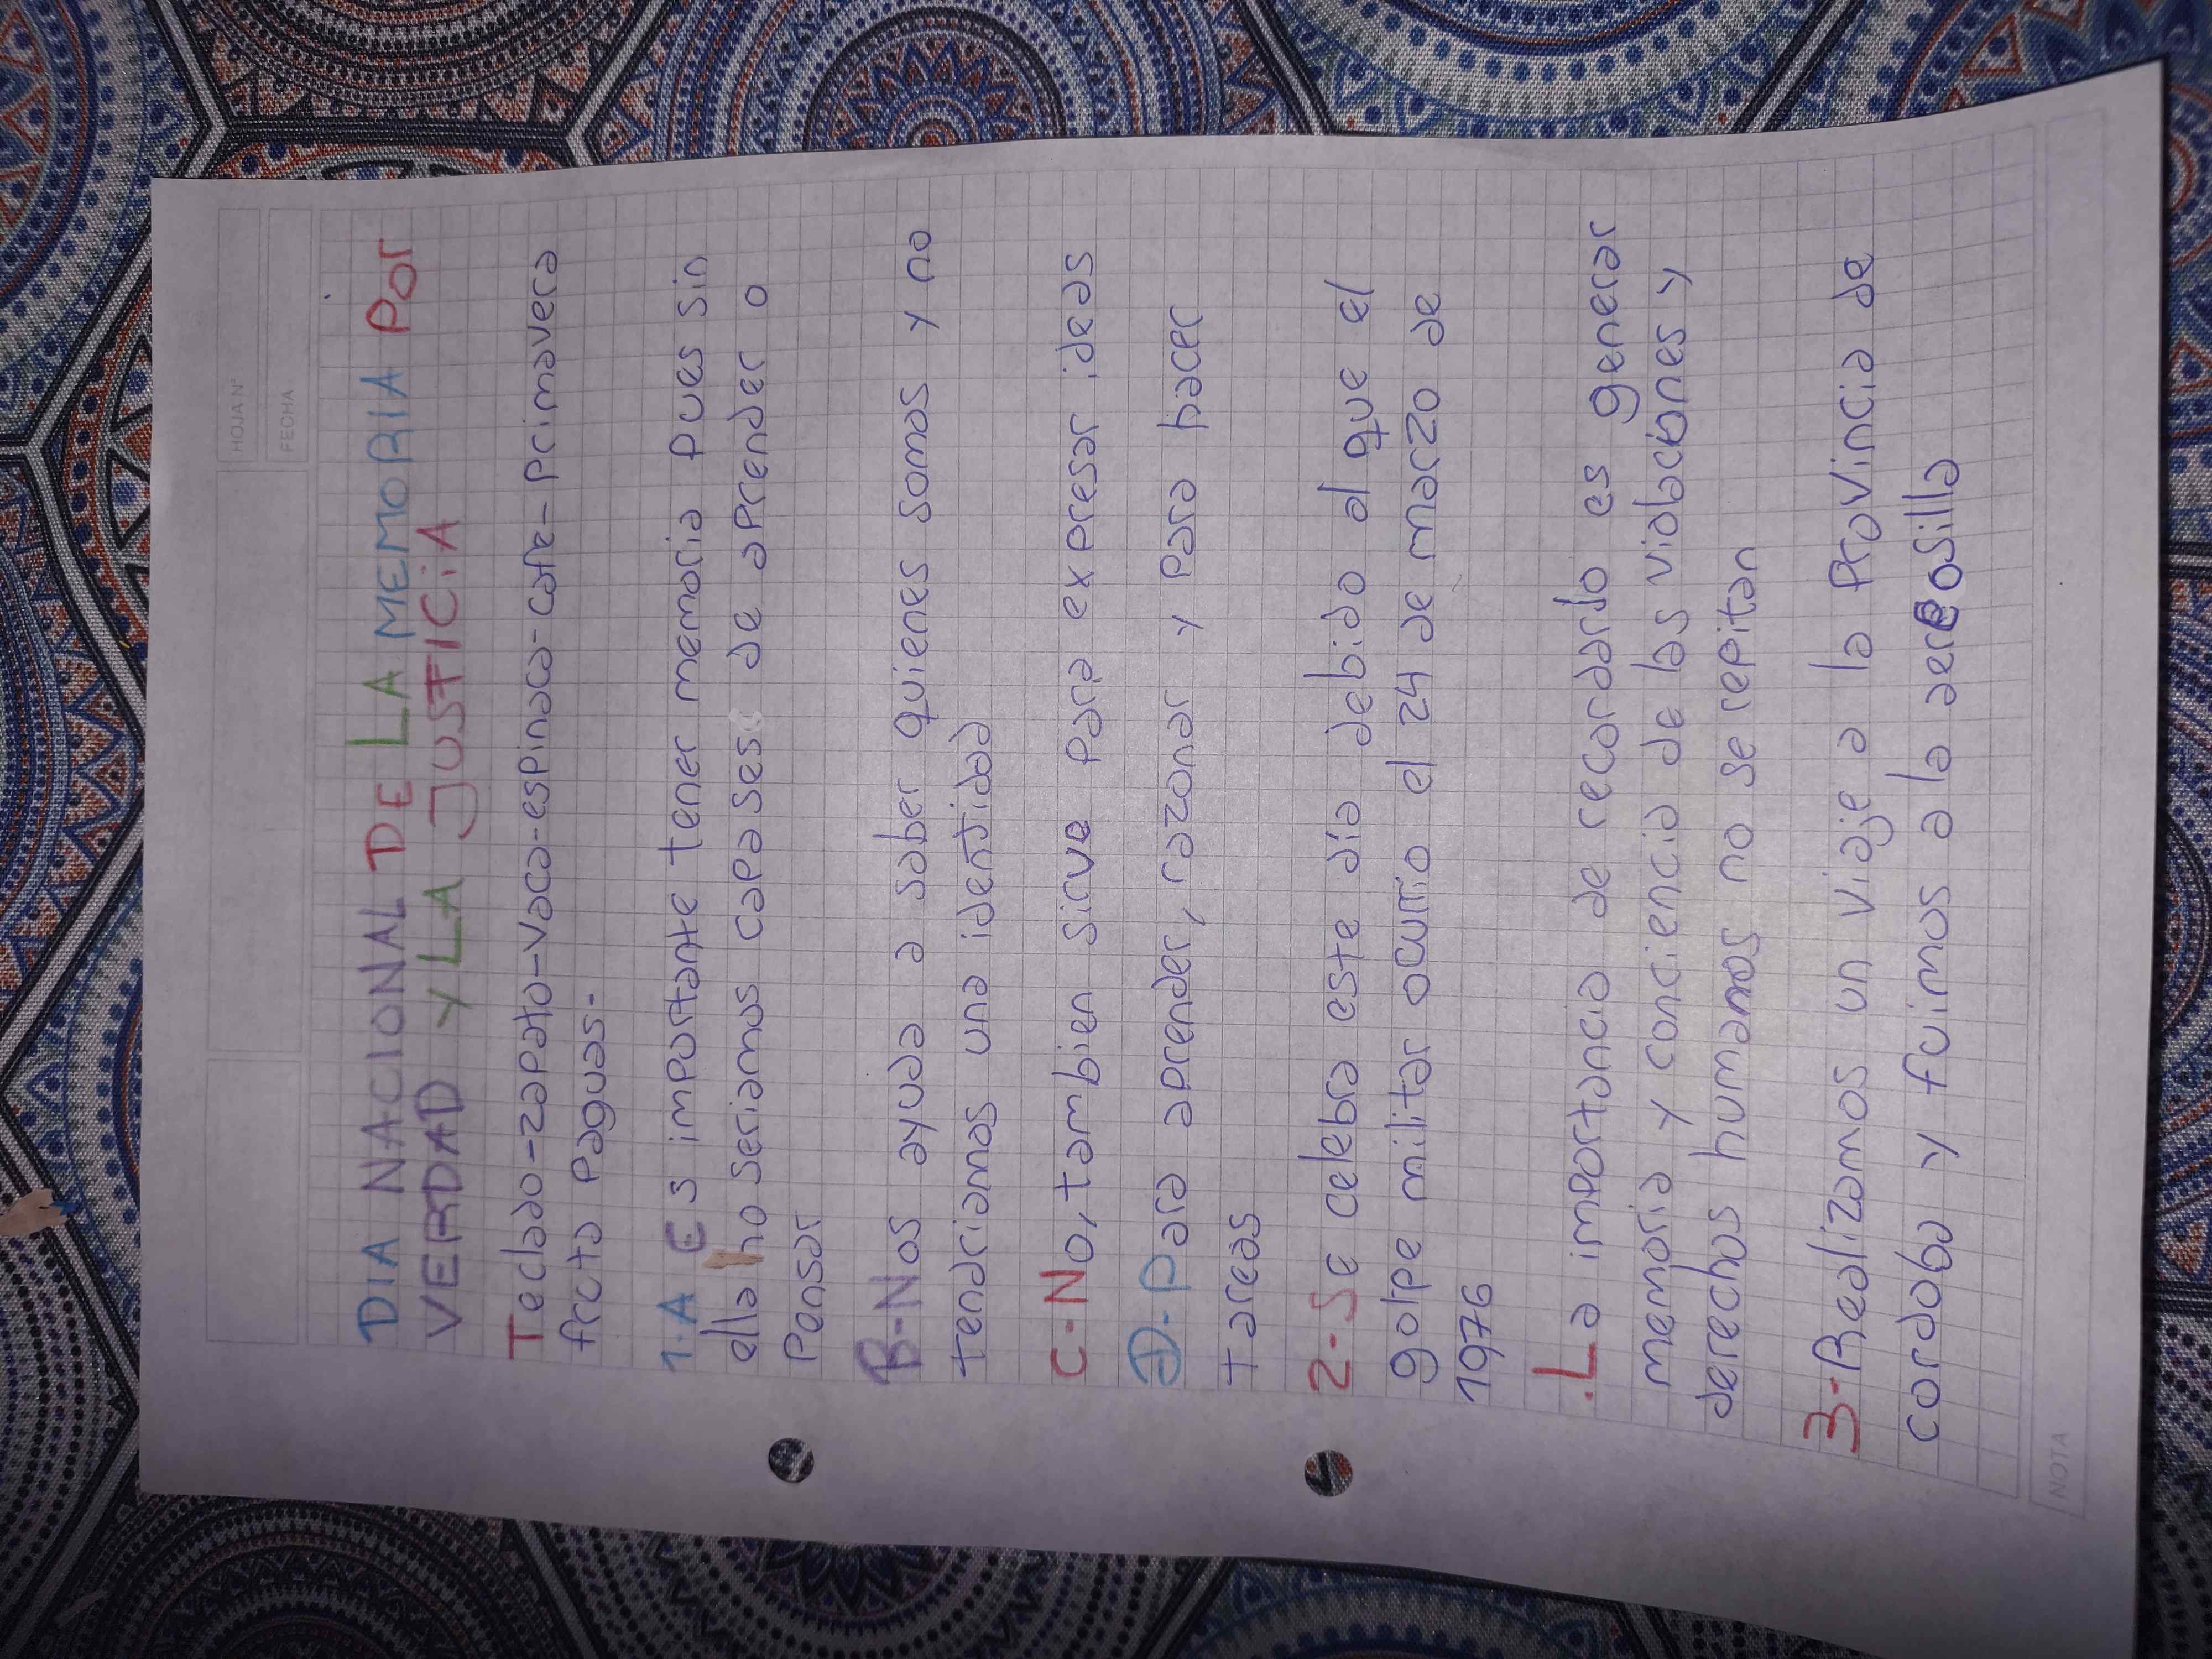 HOJA N°
FECHA
DIA NACIONAL DE LA MEMORIA POR
VERDAD Y LA JUSTICIA
Teclado-zapato-Vaca-espinaca-cafe-primavera
fruta paguas-
1-A Es importante tener memoria pues sin
ella no seriamos capases de aprender o
Pensar
B-Nos ayuda a saber quienes somos y no
tendriamos una identidad
C-No, tambien sirve para expresar ideas
D-Para aprender, razonar y para hacer
tareas
2-Se celebra este día debido al que el
golpe militar ocurrio el 24 de marzo de
1976
.La importancia de recordarlo es generar
memoria y conciencia de las violaciones y
derechos humanos no se repitan
3-Realizamos un viaje a la Provincia de
cordoba y fuimos a la aereosilla
NOTA